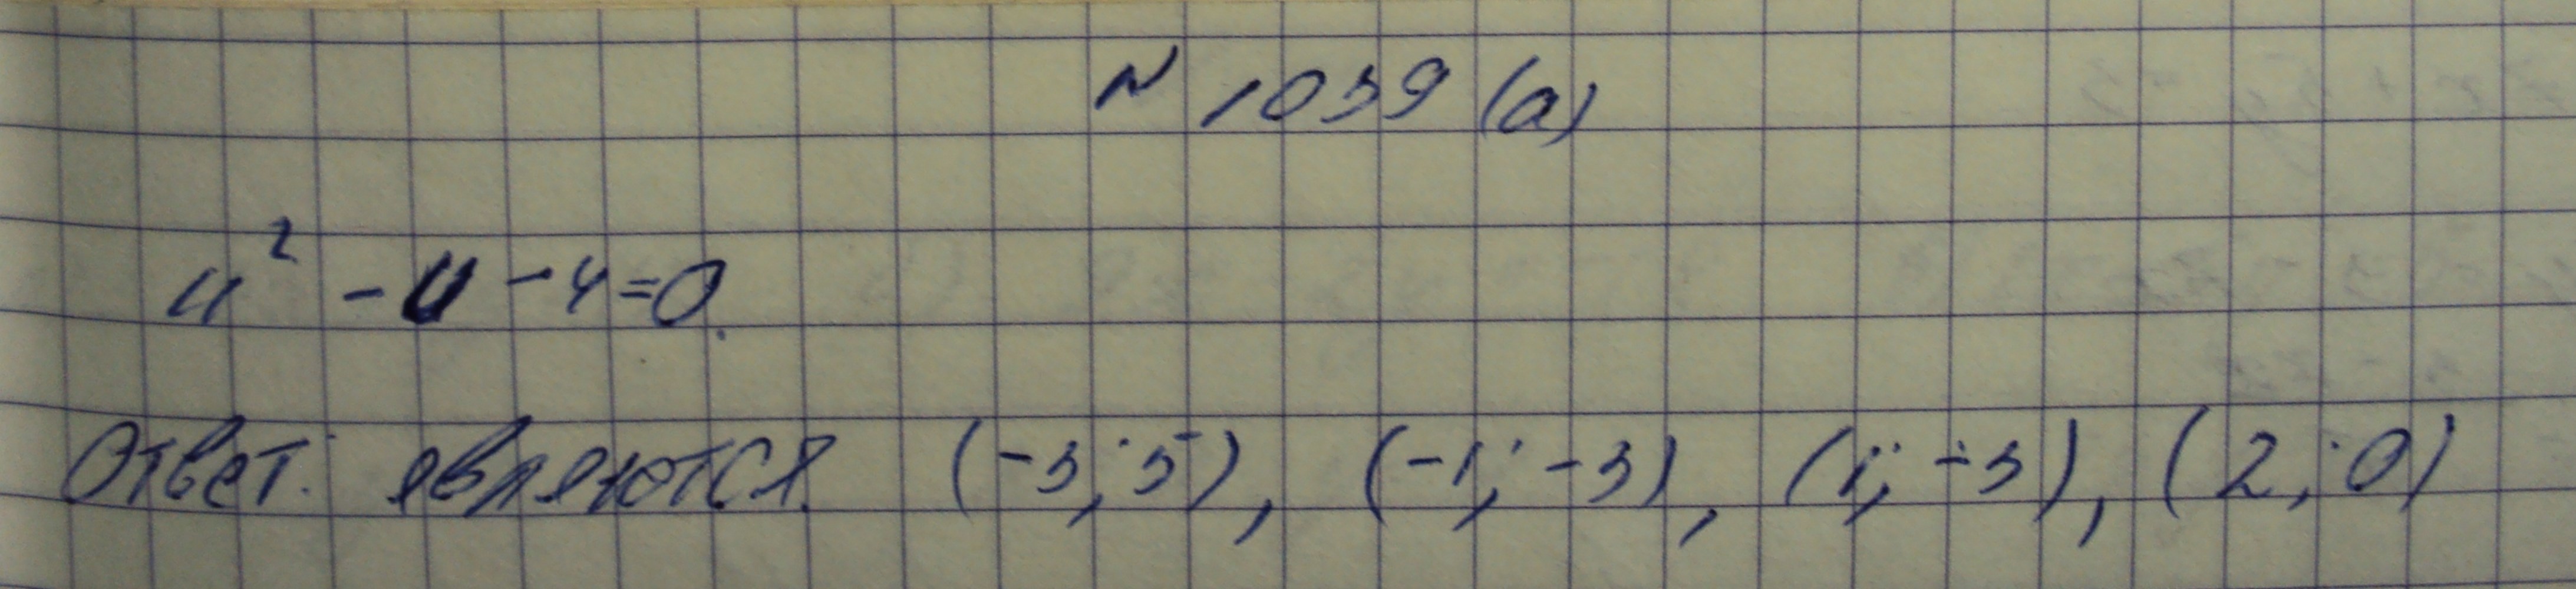 N 1039 (а)
и² - и - 4 = 0.
Ответ: являются (-3; 5), (-1; -3), (1; -3), (2; 0)